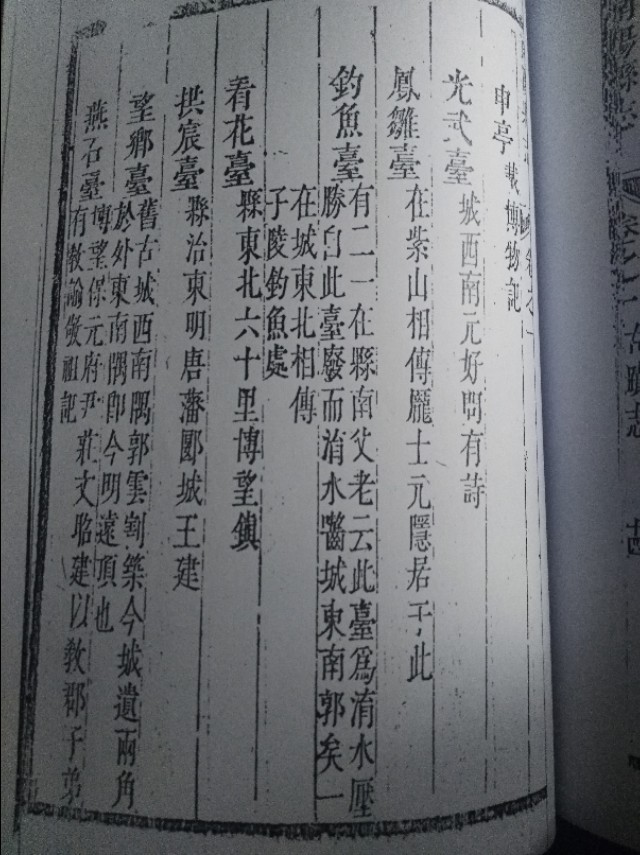 陽縣志
古蹟志
申亭 載博物記
光武臺 城西南元好問有詩
鳳雛臺 在紫山相傳龐士元隱居于此
釣魚臺 有二一在縣南父老云此臺爲淯水壓
勝自此臺廢而淯水嚙城東南郭矣一
在城東北相傳
子陵釣魚處
看花臺 縣東北六十里博望鎮
拱宸臺 縣治東明唐藩郾城王建
望鄉臺 舊古城西南隅郭雲割築今城遺兩角
於外東南隅卽今明遠項也
燕石臺 博望保元府尹莊文昭建以教郡子弟
有教諭敬祖記